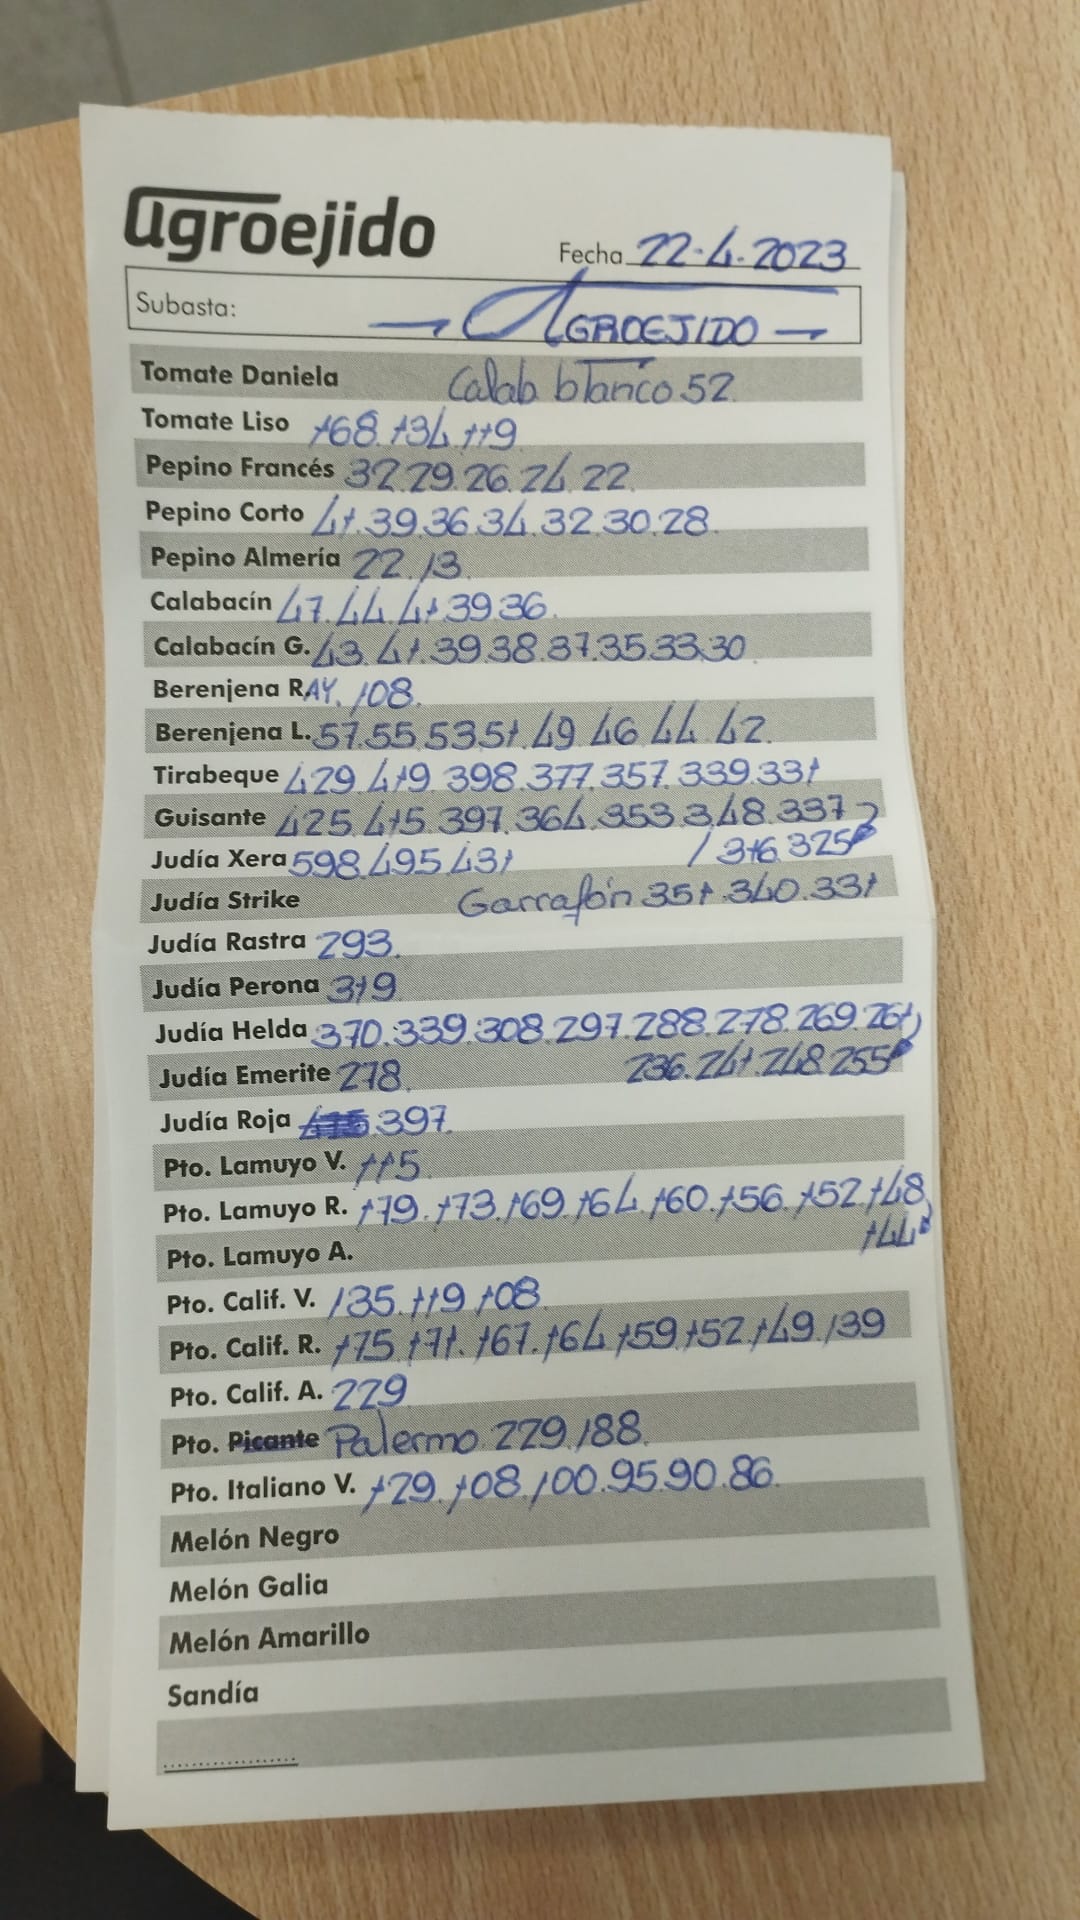 agroejido
Fecha 22.4.2023
Subasta: AGROEJIDO
Tomate Daniela Calab blanco 52.
Tomate Liso 168.134.119
Pepino Francés 32.29.26.24.22.
Pepino Corto 41.39.36.34.32.30.28.
Pepino Almería 22.13.
Calabacín 47.44.41.39.36.
Calabacín G. 43.41.39.38.37.35.33.30
Berenjena RAY. 108.
Berenjena L. 57.55.53.51.49.46.44.42.
Tirabeque 429.419.398.377.357.339.331
Guisante 425.415.397.364.353.348.337
Judía Xera 598.495.431 / 316.325
Judía Strike Garrafón 351.340.331
Judía Rastra 293.
Judía Perona 319
Judía Helda 370.339.308.297.288.278.269.261
Judía Emerite 278. 236.241.248.255
Judía Roja 397.
Pto. Lamuyo V. 115.
Pto. Lamuyo R. 179.173.169.164.160.156.152.148
Pto. Lamuyo A. 144
Pto. Calif. V. 135.119.108.
Pto. Calif. R. 175.171.167.164.159.152.149.139
Pto. Calif. A. 229
Pto. Picante Palermo 229.188.
Pto. Italiano V. 129.108.100.95.90.86.
Melón Negro
Melón Galia
Melón Amarillo
Sandía